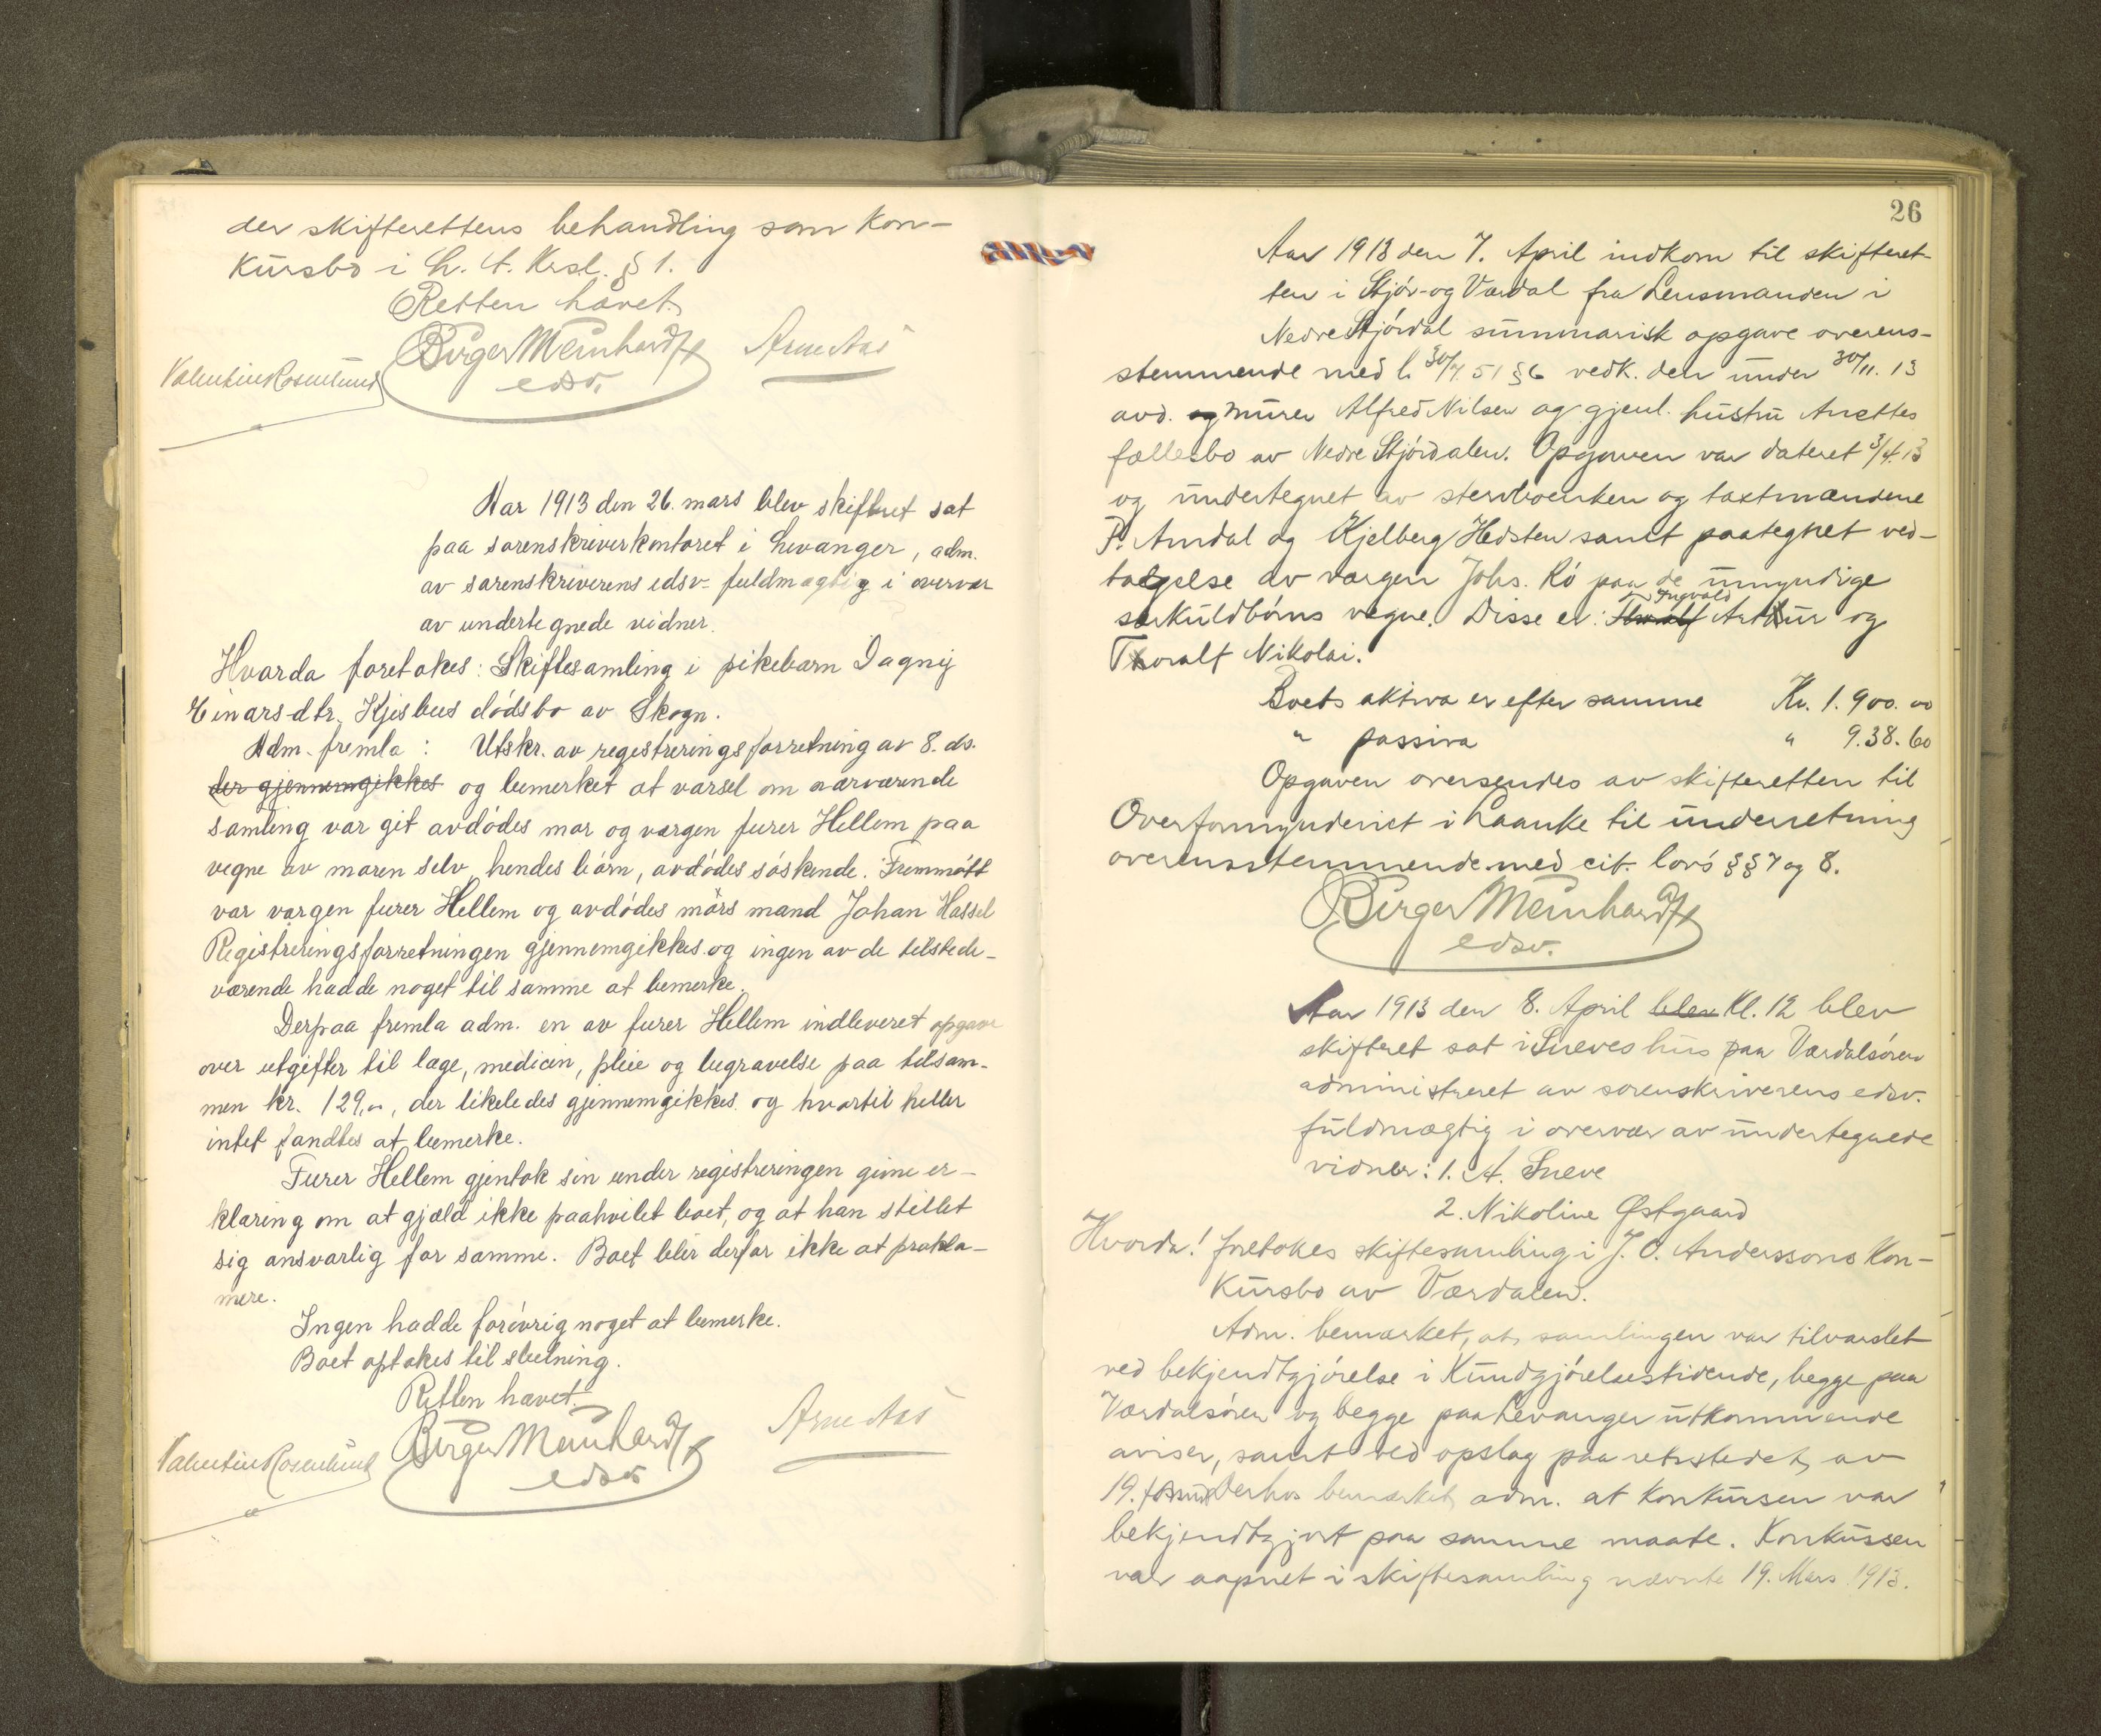 der skifterettens behandling som kon-
kursbo i h. t. Krsl. § 1.
Retten hævet.
Birger Meinhardt
edsv.
Arne Aas
Valentin Rosenlund
Aar 1913 den 26. mars blev skifteret sat
paa sorenskriverkontoret i Levanger, adm.
av sorenskriverens edsv. fuldmægtig i overvær
av undertegnede vidner.
Hvorda foretokes: Skiftesamling i pikebarn Dagny
Einarsdtr. Kjesbus dødsbo av Skogn.
Adm. fremla: Utskr. av registreringsforretning av 8. ds.
der gjennemgikkes og bemerket at varsel om nærværende
samling var git avdødes mor og værgen furer Hellem paa
vegne av moren selv, hendes børn, avdødes søskende. Fremmøtt
var værgen furer Hellem og avdødes mors mand Johan Hassel
Registreringsforretningen gjennemgikkes og ingen av de tilstede-
værende hadde noget til samme at bemerke.
Derpaa fremla adm. en av furer Hellem indleveret opgave
over utgifter til læge, medicin, pleie og begravelse paa tilsam-
men kr. 129,00, der likeledes gjennemgikkes og hvortil heller
intet fandtes at bemerke.
Furer Hellem gjentok sin under registreringen givne er-
klæring om at gjæld ikke paahvilet boet, og at han stillet
sig ansvarlig for samme. Boet blir derfor ikke at prokla-
mere.
Ingen hadde forøvrig noget at bemerke.
Boet optokes til slutning.
Retten hævet.
Birger Meinhardt
edsv.
Arne Aas
Valentin Rosenlund
26
Aar 1913 den 7. April indkom til skifteret-
ten i Stjør- og Værdal fra Lensmanden i
Nedre Stjørdal summarisk opgave overens-
stemmende med l. 30/7. 51 § 6 vedk. den under 30/11. 13
avd. og murer Alfred Nilsen og gjenl. hustru Anettes
fællesbo av Nedre Stjørdalen. Opgaven var dateret 3/4. 13
og undertegnet av stervboenken og taxtmændene
P. Amdal og Kjelberg Hedsten samt paategnet ved-
tagelse av værgen Johs. Rø paa de umyndige
særkuldbørns vegne. Disse er: Thoralf Ingvald Artur og
Toralf Nikolai.
Boets aktiva er efter samme Kr. 1.900.00
" passiva " 9.38.60
Opgaven oversendes av skifteretten til
Overformynderiet i Laanke til underretning
overensstemmende med cit. lovs §§ 7 og 8.
Birger Meinhardt
edsv.
Aar 1913 den 8. April blev Kl. 12 blev
skifteret sat i Sneves hus paa Værdalsøren
administreret av sorenskriverens edsv.
fuldmægtig i overvær av undertegnede
vidner: 1. A. Sneve
2. Nikoline Østgaard
Hvorda! foretokes skiftesamling i J. O. Anderssons Kon-
kursbo av Værdalen.
Adm. bemærket, at samlingen var tilvarslet
ved bekjendtgjørelse i Kundgjørelsestidende, begge paa
Værdalsøren og begge paa Levanger utkommende
aviser, samt ved opslag paa retsstedet av
19. Derhos bemærket adm. at konkursen var
bekjendtgjort paa samme maate. Konkursen
var aapnet i skiftesamling nævnte 19. Mars 1913.